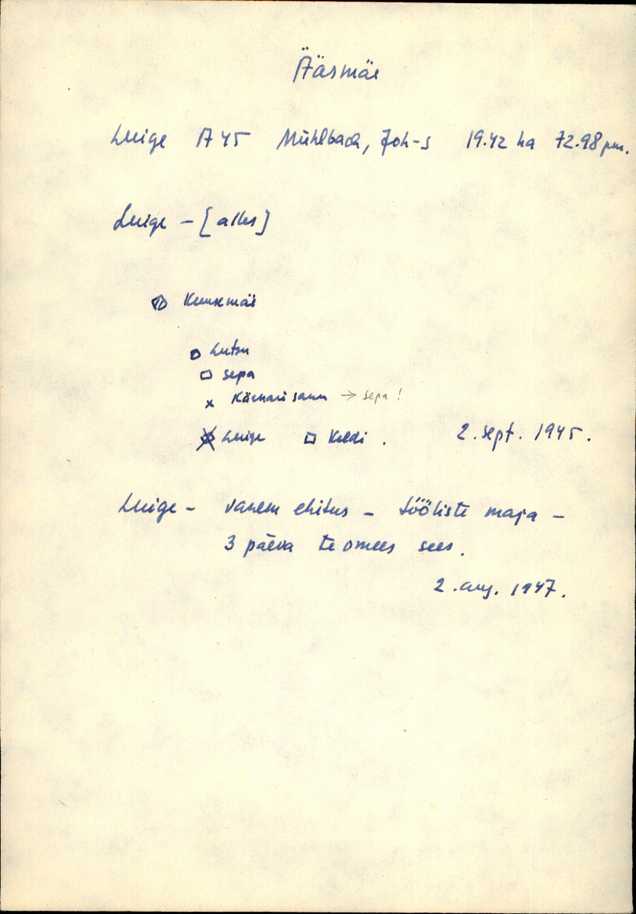 Ääsmäe
Luige A 45 Mühlbach, Joh-s 19.42 ha 72.98 pm.
Luige – [alles]
Kuusemäe
Lutsu
Sepa
sauna → sepa!
Luige Keldi . 2. sept. 1945.
Luige – vanem ehitus – tööliste maja –
3 päeva teomees sees.
2. aug. 1947.